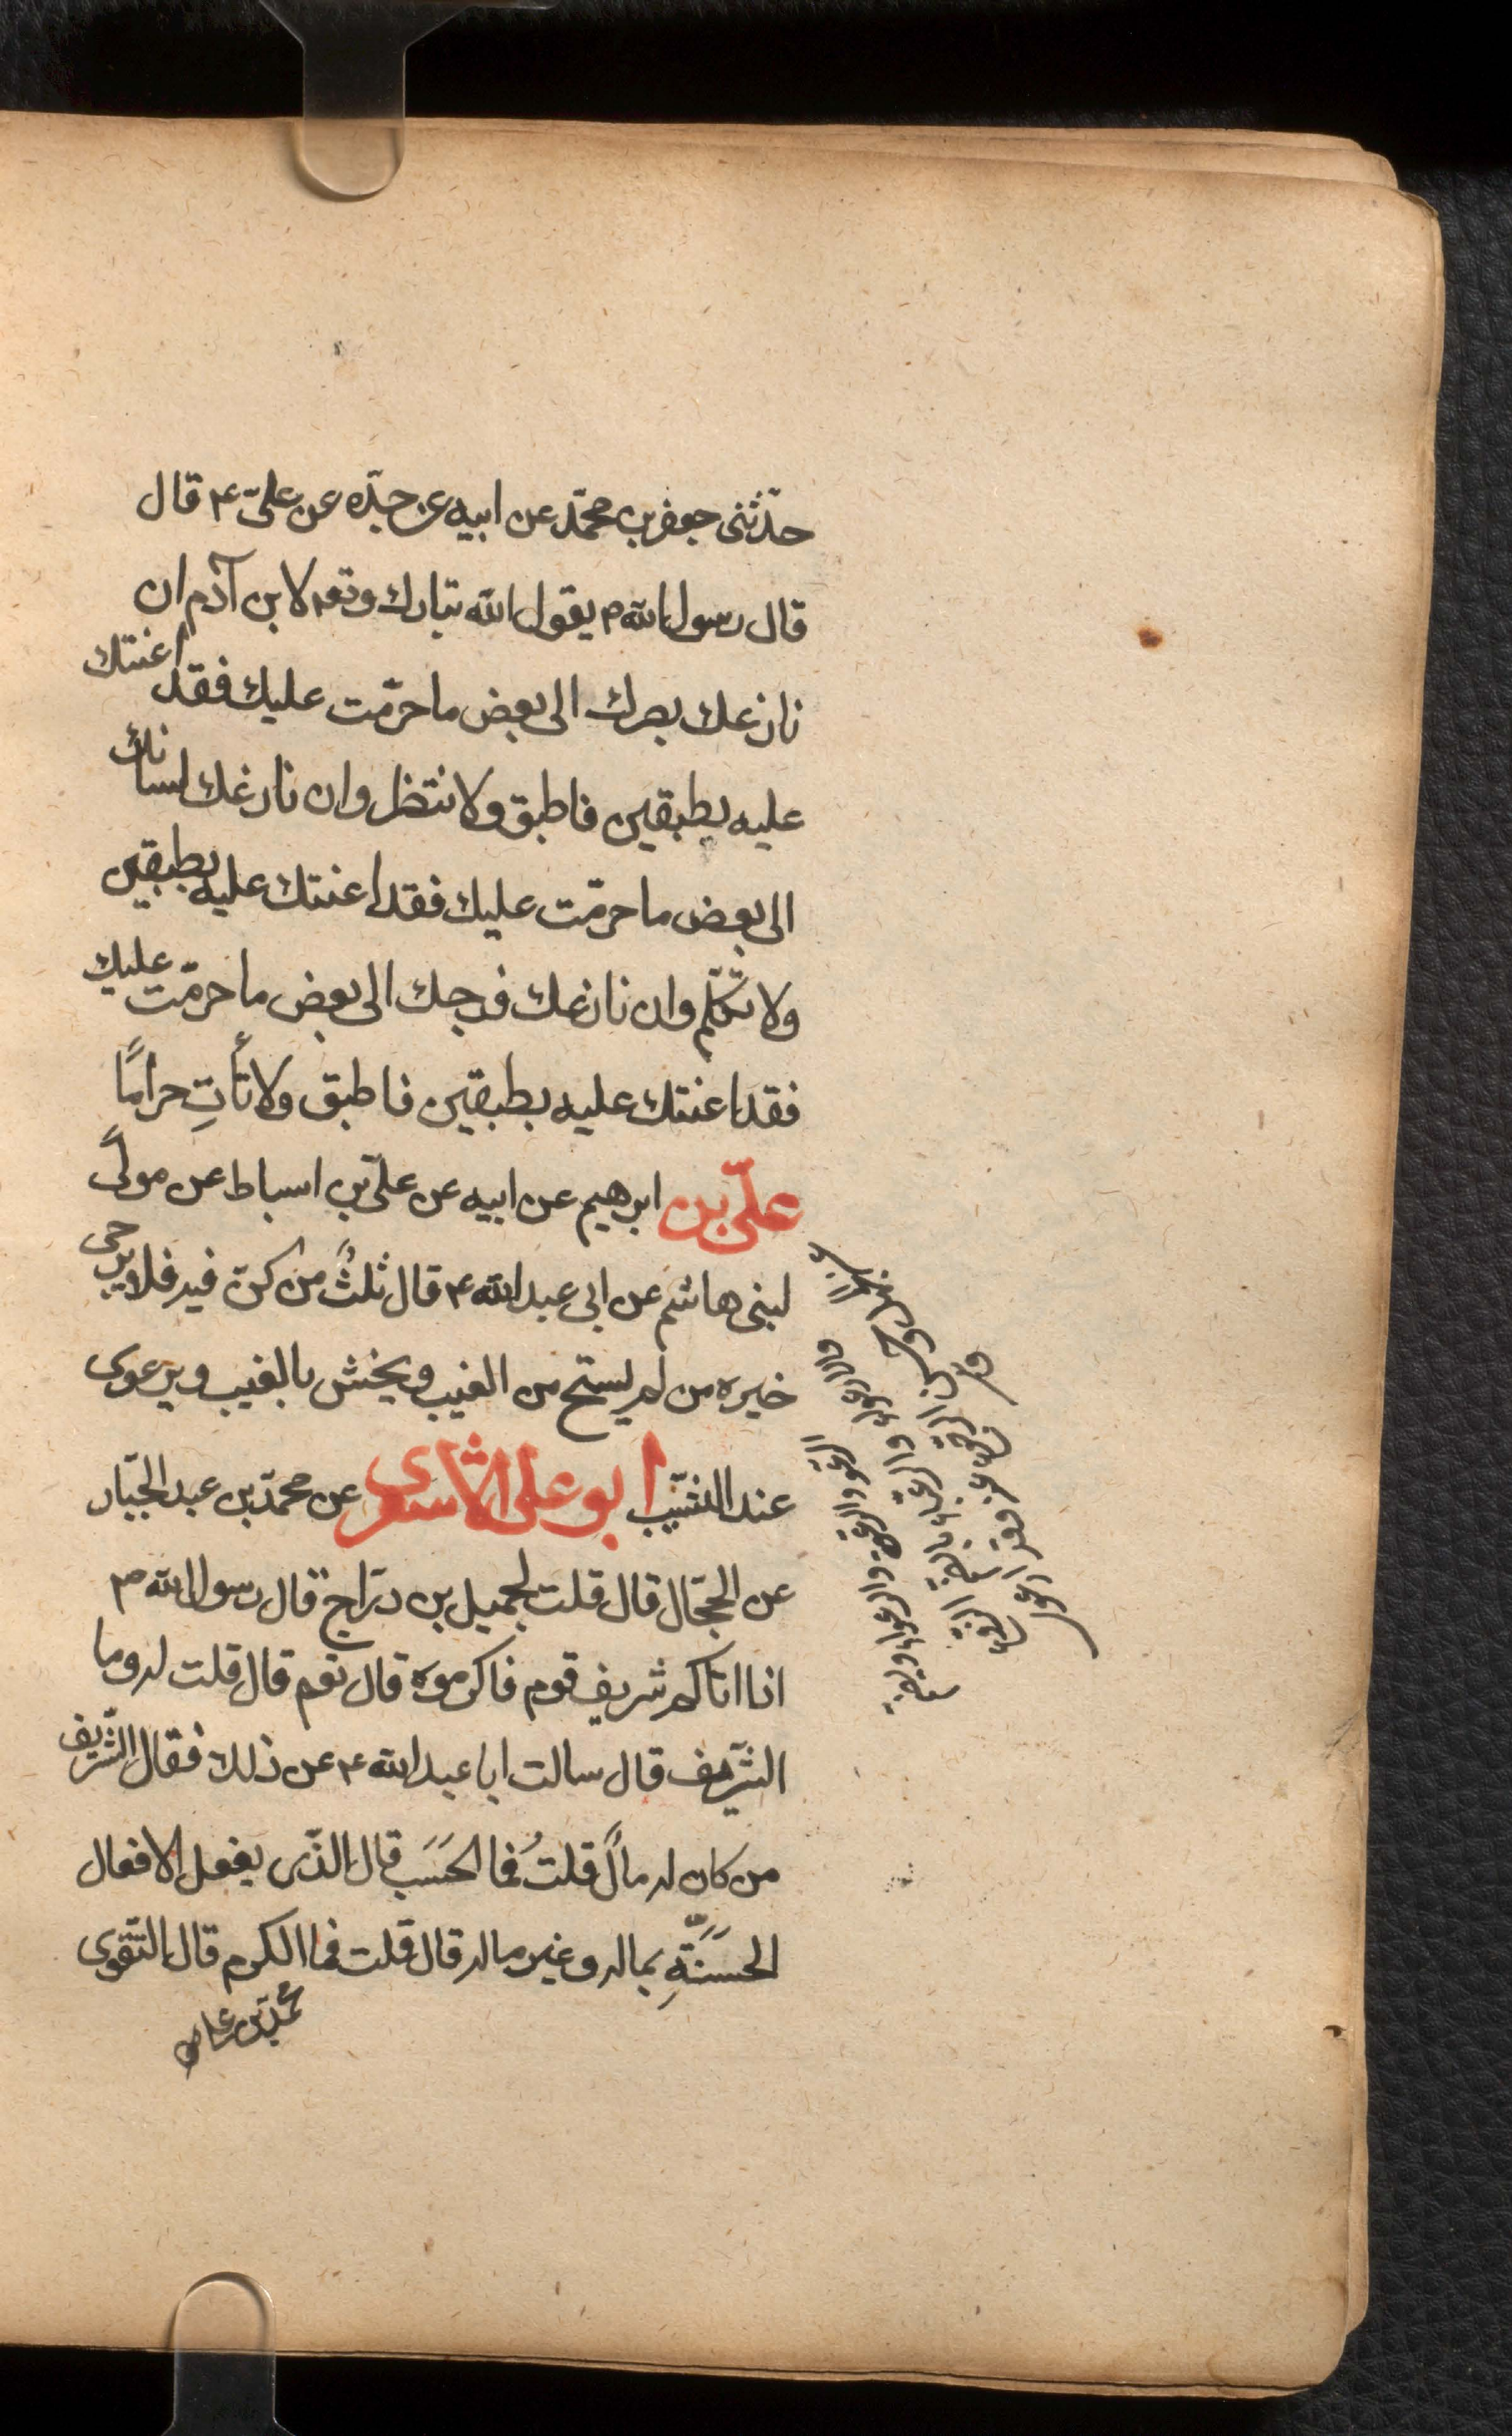 حدّثنى جعفر بن محمّد عن ابيه عن جدّه عن علىّ ۴ قال
قال رسول الله ۳ يقول الله تبارك وتعه لابن آدم ان
نازعك بصرك الى بعض ما حرّمت عليك فقد اعنتك
عليه بطبقين فاطبق ولا تنتظر وان نازعك لسانك
الى بعض ما حرّمت عليك فقد اعنتك عليه بطبقين
ولا تكلّم وان نازعك فرجك الى بعض ما حرّمت عليك
فقد اعنتك عليه بطبقين فاطبق ولا تأتِ حرامًا
علىّ بن ابرهيم عن ابيه عن علىّ بن اسباط عن مولًى
لبنى هاشم عن ابى عبد الله ۴ قال ثلثٌ من كنّ فيه فلا يرجى
خيره من لم يستح من العيب ويخش بالغيب ويرعوى
عند الشيب ابو على الاشعرى عن محمّد بن عبد الجبّار
عن الحجّال قال قلت لجميل بن درّاج قال رسول الله ۳
اذا اتاكم شريف قوم فاكرموه قال نعم قال قلت له وما
الشّريف قال سالت ابا عبد الله ۴ عن ذلك فقال الشّريف
من كان له مالٌ قلتُ فما الحَسَب قال الذّى يفعل الافعال
الحَسَنَةِ بماله وغير ماله قال قلت فما الكرم قال التّقوى